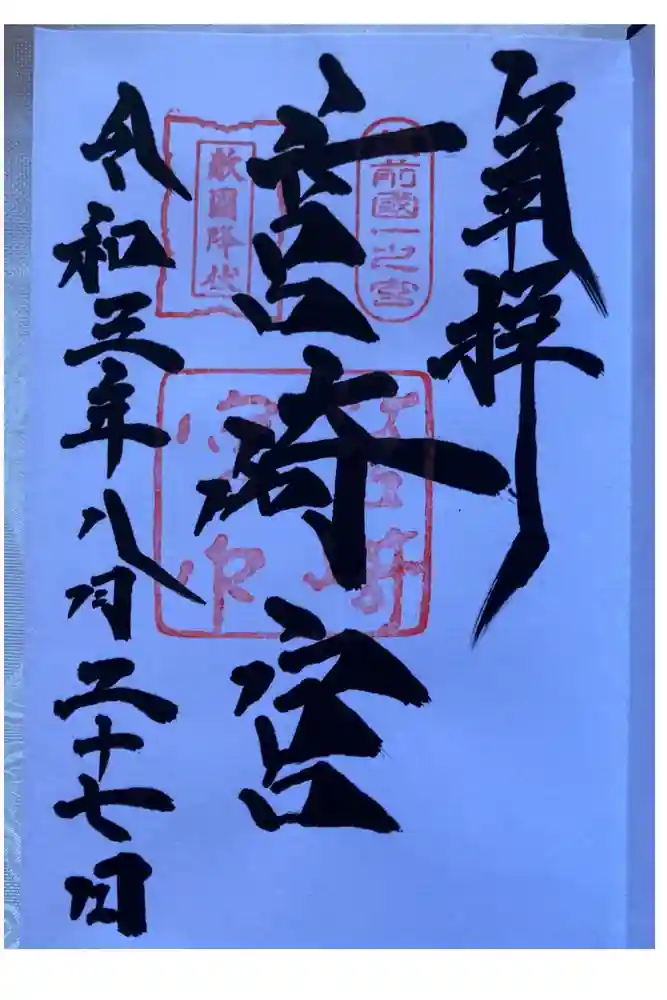 奉拝
前國一之宮
筥崎宮
敵國降伏
令和三年八月二十七日